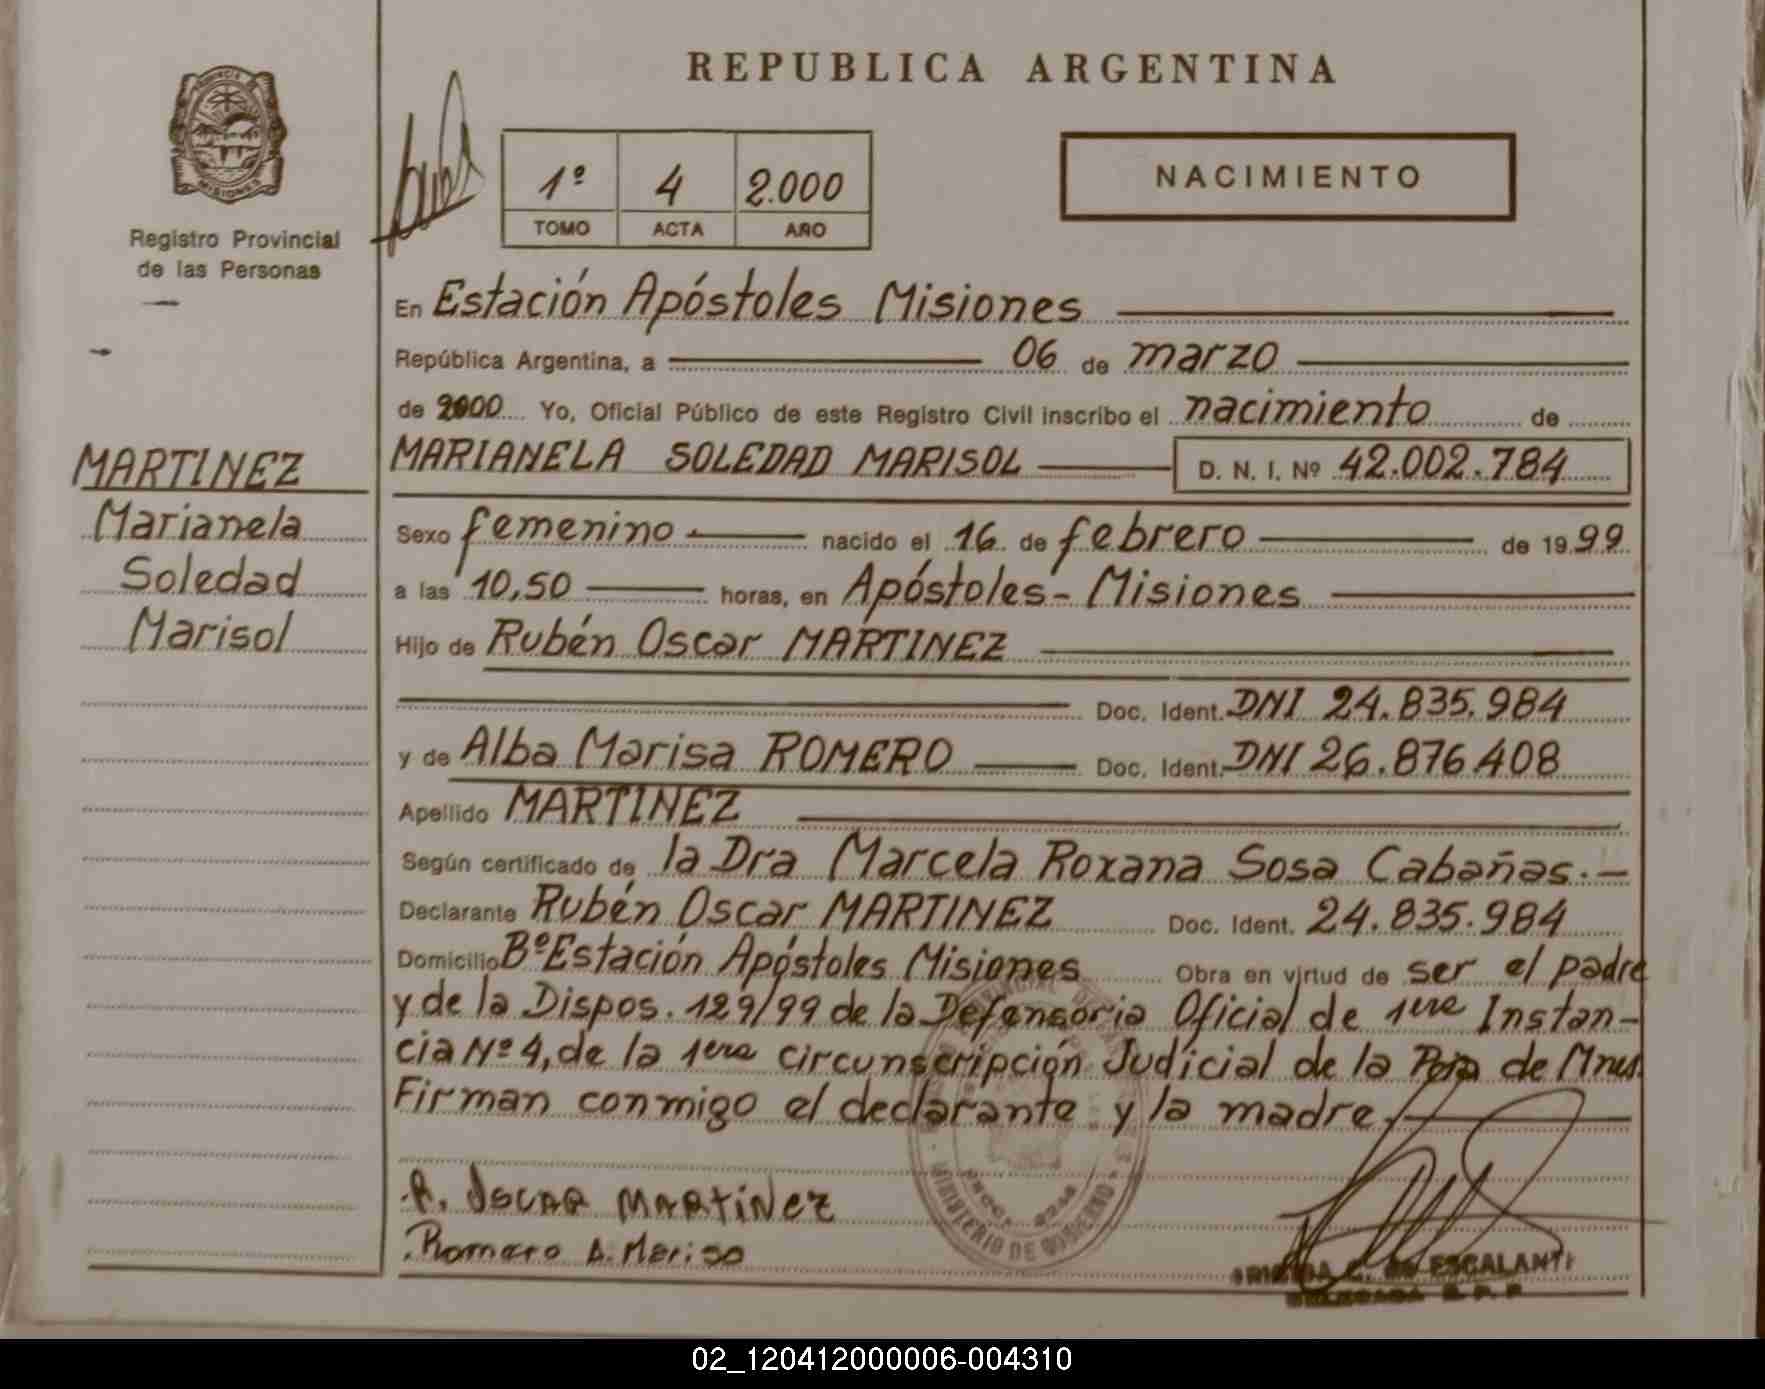 PROVINCIA
MISIONES
Registro Provincial
de las Personas
MARTINEZ
Marianela
Soledad
Marisol
REPUBLICA ARGENTINA
1º 4 2.000
TOMO ACTA AÑO
NACIMIENTO
En Estación Apóstoles Misiones
República Argentina, a 06 de marzo
de 2000 Yo, Oficial Público de este Registro Civil inscribo el nacimiento de
MARIANELA SOLEDAD MARISOL D. N. I. Nº 42.002.784
Sexo femenino nacido el 16 de febrero de 1999
a las 10,50 horas, en Apóstoles - Misiones
Hijo de Rubén Oscar MARTINEZ
Doc. Ident. DNI 24.835.984
y de Alba Marisa ROMERO Doc. Ident. DNI 26.876.408
Apellido MARTINEZ
Según certificado de la Dra Marcela Roxana Sosa Cabañas.-
Declarante Rubén Oscar MARTINEZ Doc. Ident. 24.835.984
Domicilio Bº Estación Apóstoles Misiones Obra en virtud de ser el padre
y de la Dispos. 129/99 de la Defensoria Oficial de 1era Instan-
cia Nº 4, de la 1era circunscripción Judicial de la Pcia de Mnes.
Firman conmigo el declarante y la madre.
R. OSCAR MARTINEZ
Romero A. Marisa
MINISTERIO DE GOBIERNO
DE ESCALANTE
02_120412000006-004310